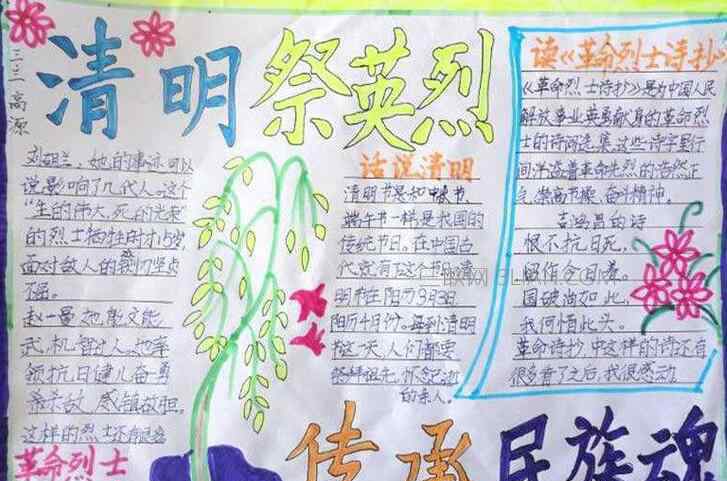 清明祭英烈
三三 高源
刘胡兰,她的事迹可以
说影响了几代人。这个
“生的伟大,死的光荣”
的烈士牺牲时才15岁,
面对敌人的铡刀坚贞
不屈。
赵一曼她能文能
武,机智过人。她率
领抗日健儿奋勇
杀敌,威镇敌胆。
这样的烈士还有很多
革命烈士
话说清明
清明节是和中秋节、
端午节一样,是我国的
传统节日。在中国古
代就有了这个节日。清
明节在阳历3月3日,
阳历4月份。每到清明
节这一天,人们都要
祭拜祖先,怀念逝
的亲人。
读《革命烈士诗抄》
《革命烈士诗抄》是为中国人民
解放事业英勇献身的革命烈
士的诗词选集,这些诗字里行
间洋溢着革命先烈的浩然正
气,崇高节操、奋斗精神。
吉鸿昌的诗
恨不抗日死,
留作今日羞。
国破尚如此,
我何惜此头。
革命诗抄中这样的诗还有
很多看了之后,我很感动
传承民族魂